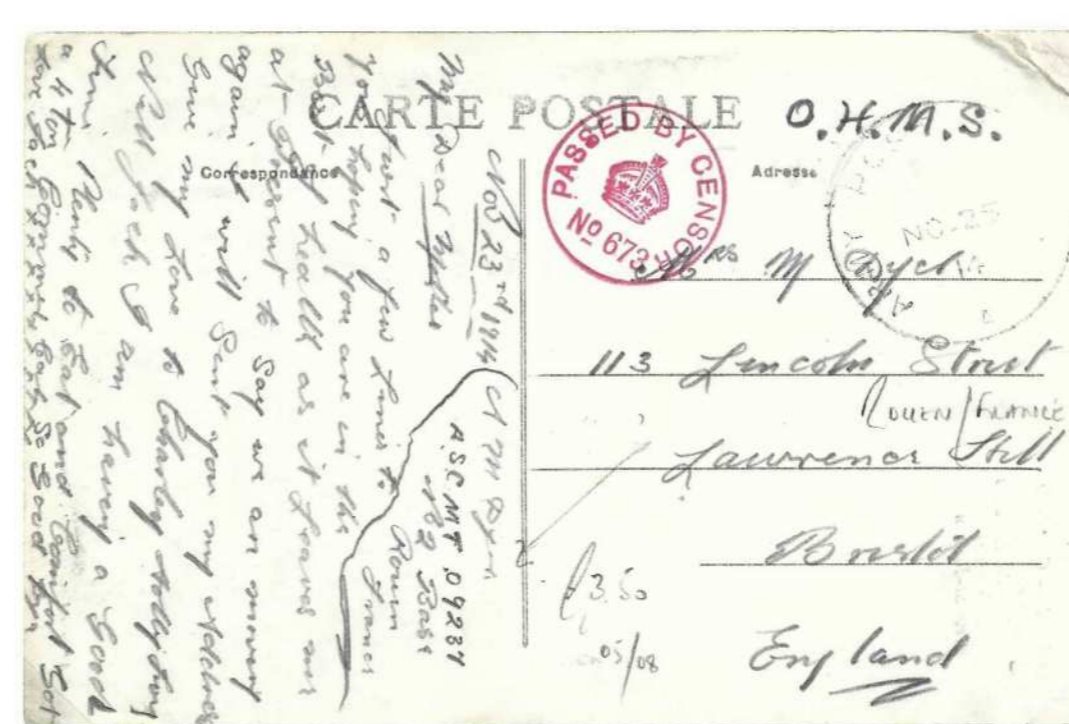 CARTE POSTALE
O.H.M.S.
Correspondance
Adresse
PASSED BY CENSOR
Nº 673
NO 25
ARMY
Mrs M Dyer
113 Lincoln Street
ROUEN / FRANCE
Lawrence Hill
Bristol
England
3.50
05/08
Nov 23rd 1914
A M Dyer
A.S.C. M T 09237
No 2 Base
Rouen
France
My Dear Mother
Just a few Lines to
you hoping you are in the
Best of Health as it Leaves me
at Present to Say we are moving
again & will Sent you my Address
Give my Love to Charley Dolly Tiny
Will Jack I am having a Good
Time Plenty to Eat and Comfort Got
a 4 ton